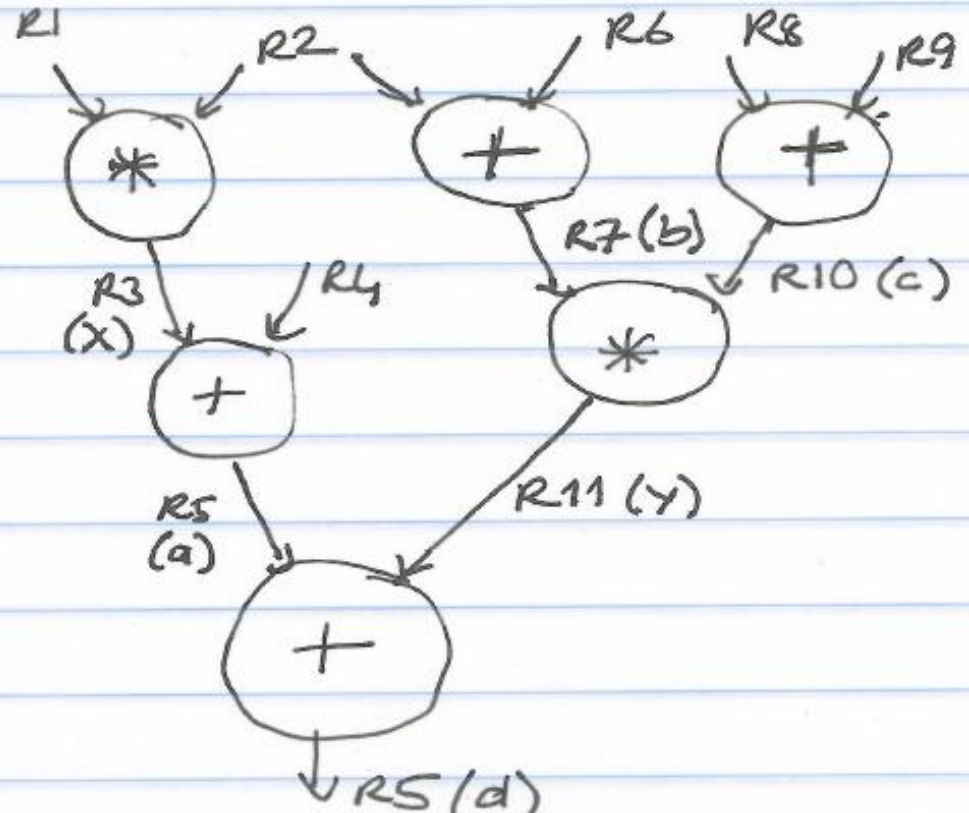 R1 R2 R6 R8 R9
* + +
R7 (b) R10 (c)
R3 R4
(X)
+ *
R5 R11 (y)
(a)
+
R5 (d)